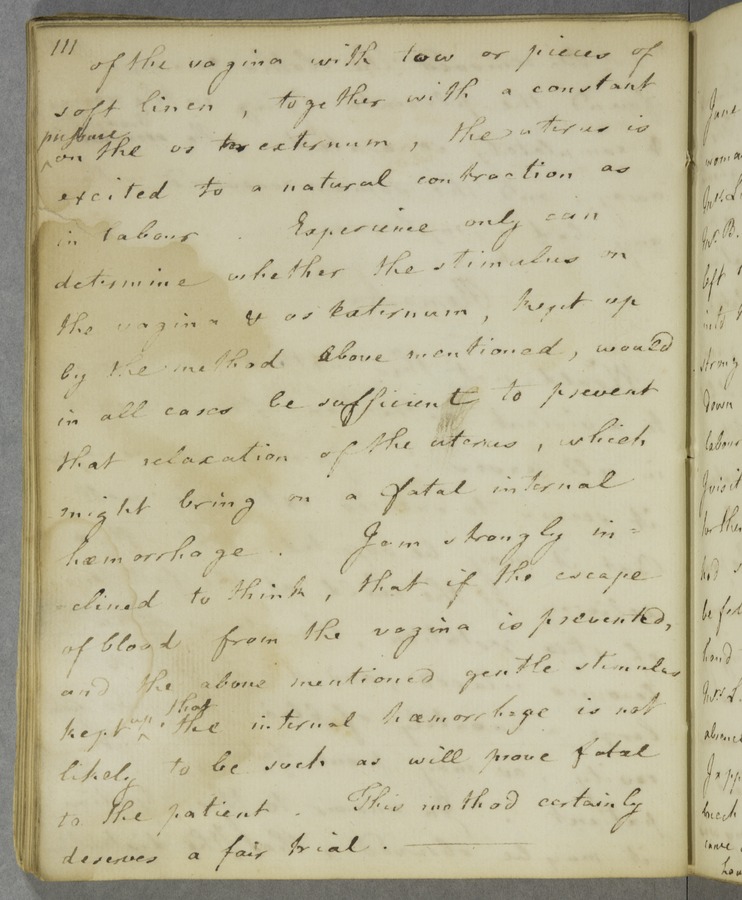 111
of the vagina with tow or pieces of
soft linen, together with a constant
pressure
on the os externum, the uterus is
excited to a natural contraction as
in labour. Experience only can
determine whether the stimulus on
the vagina & os externum, kept up
by the method above mentioned, would
in all cases be sufficient to prevent
that relaxation of the uterus, which
might bring on a fatal internal
hæmorrhage. I am strongly in=
clined to think, that if the escape
of blood from the vagina is prevented,
and the above mentioned gentle stimulus
up, that
kept the internal hæmorrhage is not
likely to be such as will prove fatal
to the patient. This method certainly
deserves a fair trial.
June
woma
Mrs. B.
left
strong
down
labour
hand